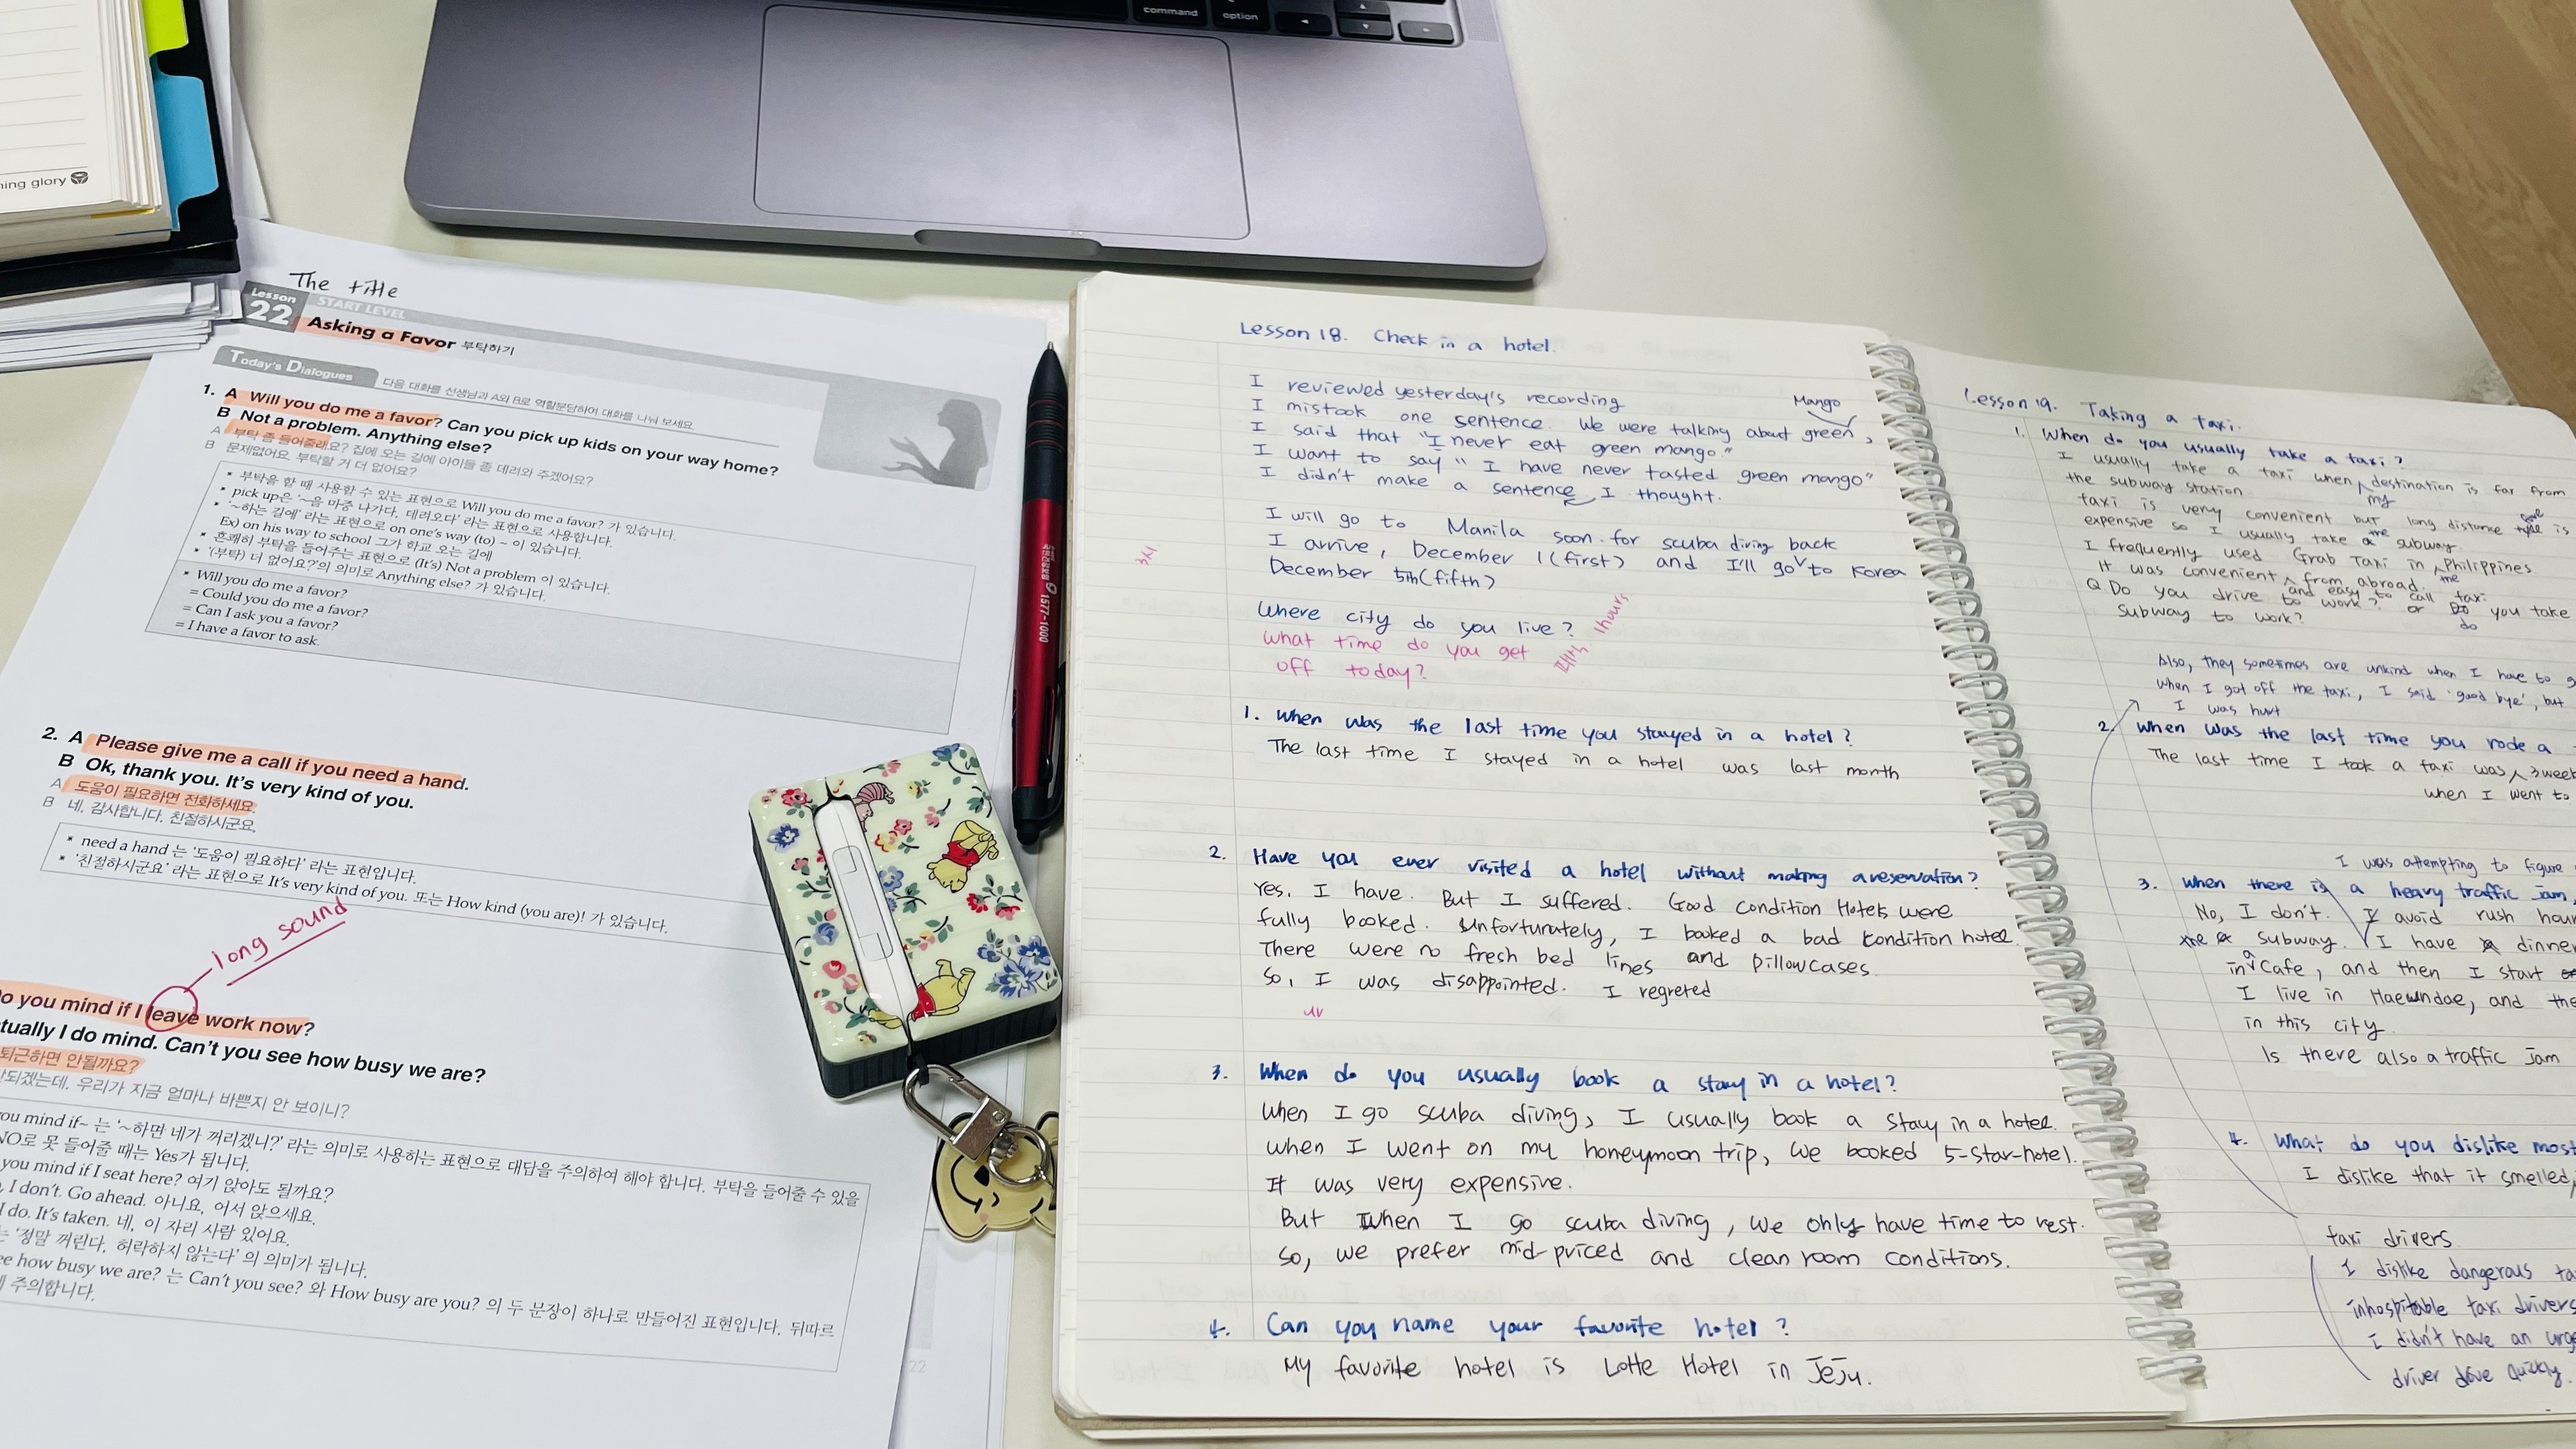 command
option
ning glory
The title
Lesson
22
START LEVEL
Asking a Favor 부탁하기
Today's Dialogues
다음 대화를 선생님과 A와 B로 역할분담하여 대화를 나눠 보세요.
1. A Will you do me a favor? Can you pick up kids on your way home?
B Not a problem. Anything else?
A 부탁 좀 들어줄래요? 집에 오는 길에 아이들 좀 데려와 주겠어요?
B 문제없어요. 부탁할 거 더 없어요?
* 부탁을 할 때 사용할 수 있는 표현으로 Will you do me a favor? 가 있습니다.
* pick up은 '~을 마중 나가다, 데려오다' 라는 표현으로 사용합니다.
* '~하는 길에' 라는 표현으로 on one's way (to) ~ 이 있습니다.
Ex) on his way to school 그가 학교 오는 길에
* 흔쾌히 부탁을 들어주는 표현으로 (It's) Not a problem 이 있습니다.
* '(부탁) 더 없어요?'의 의미로 Anything else? 가 있습니다.
* Will you do me a favor?
= Could you do me a favor?
= Can I ask you a favor?
= I have a favor to ask.
2. A Please give me a call if you need a hand.
B Ok, thank you. It's very kind of you.
A 도움이 필요하면 전화하세요.
B 네, 감사합니다. 친절하시군요.
* need a hand 는 '도움이 필요하다' 라는 표현입니다.
* '친절하시군요' 라는 표현으로 It's very kind of you. 또는 How kind (you are)! 가 있습니다.
long sound
o you mind if I leave work now?
tually I do mind. Can't you see how busy we are?
퇴근하면 안될까요?
되겠는데, 우리가 지금 얼마나 바쁜지 안 보이니?
ou mind if~ 는 '~하면 네가 꺼리겠니?' 라는 의미로 사용하는 표현으로 대답을 주의하여 해야 합니다. 부탁을 들어줄 수 있을
NO로 못 들어줄 때는 Yes가 됩니다.
you mind if I seat here? 여기 앉아도 될까요?
, I don't. Go ahead. 아니요, 어서 앉으세요.
I do. It's taken. 네, 이 자리 사람 있어요.
는 '정말 꺼린다, 허락하지 않는다' 의 의미가 됩니다.
ee how busy we are? 는 Can't you see? 와 How busy are you? 의 두 문장이 하나로 만들어진 표현입니다. 뒤따르
주의합니다.
22
1577-1000
Lesson 18. Check in a hotel.
I reviewed yesterday's recording
Mango
I mistook one sentence. We were talking about green,
I said that "I never eat green mango."
I want to say "I have never tasted green mango"
I didn't make a sentence I thought.
I will go to Manila soon for scuba diving back
I arrive, December 1(first) and I'll go to Korea
December 5th(fifth)
Where city do you live?
What time do you get
off today?
1hours
1. When was the last time you stayed in a hotel?
The last time I stayed in a hotel was last month
2. Have you ever visited a hotel without making a reservation?
Yes, I have. But I suffered. Good condition Hotels were
fully booked. Unfortunately, I booked a bad condition hotel.
There were no fresh bed lines and pillowcases.
So, I was disappointed. I regreted
3. When do you usually book a stay in a hotel?
When I go scuba diving, I usually book a stay in a hotel.
When I went on my honeymoon trip, we booked 5-star-hotel.
It was very expensive.
But when I go scuba diving, we only have time to rest.
So, we prefer mid-priced and clean room conditions.
4. Can you name your favorite hotel?
My favorite hotel is Lotte Hotel in Jeju.
Lesson 19. Taking a taxi.
1. When do you usually take a taxi?
I usually take a taxi when destination is far from
my
the subway station
taxi is very convenient but long distance is
expensive so I usually take the subway.
I frequently used Grab Taxi in Philippines
the
It was convenient from abroad.
and easy to call taxi
Q Do you drive to work? or Do you take
do
subway to work?
Also, they sometimes are unkind when I have to g
When I got off the taxi, I said 'good bye', but
I was hurt
2. When was the last time you rode a
The last time I took a taxi was 3week
when I went to
I was attempting to figure
3. When there is a heavy traffic jam,
No, I don't. I avoid rush hour
the subway. I have dinne
in a Cafe, and then I start
I live in Haeundae, and the
in this city.
Is there also a traffic jam
4. What do you dislike most
I dislike that it smelled,
taxi drivers
I dislike dangerous ta
inhospitable taxi drivers
I didn't have an urge
driver drive quickly.